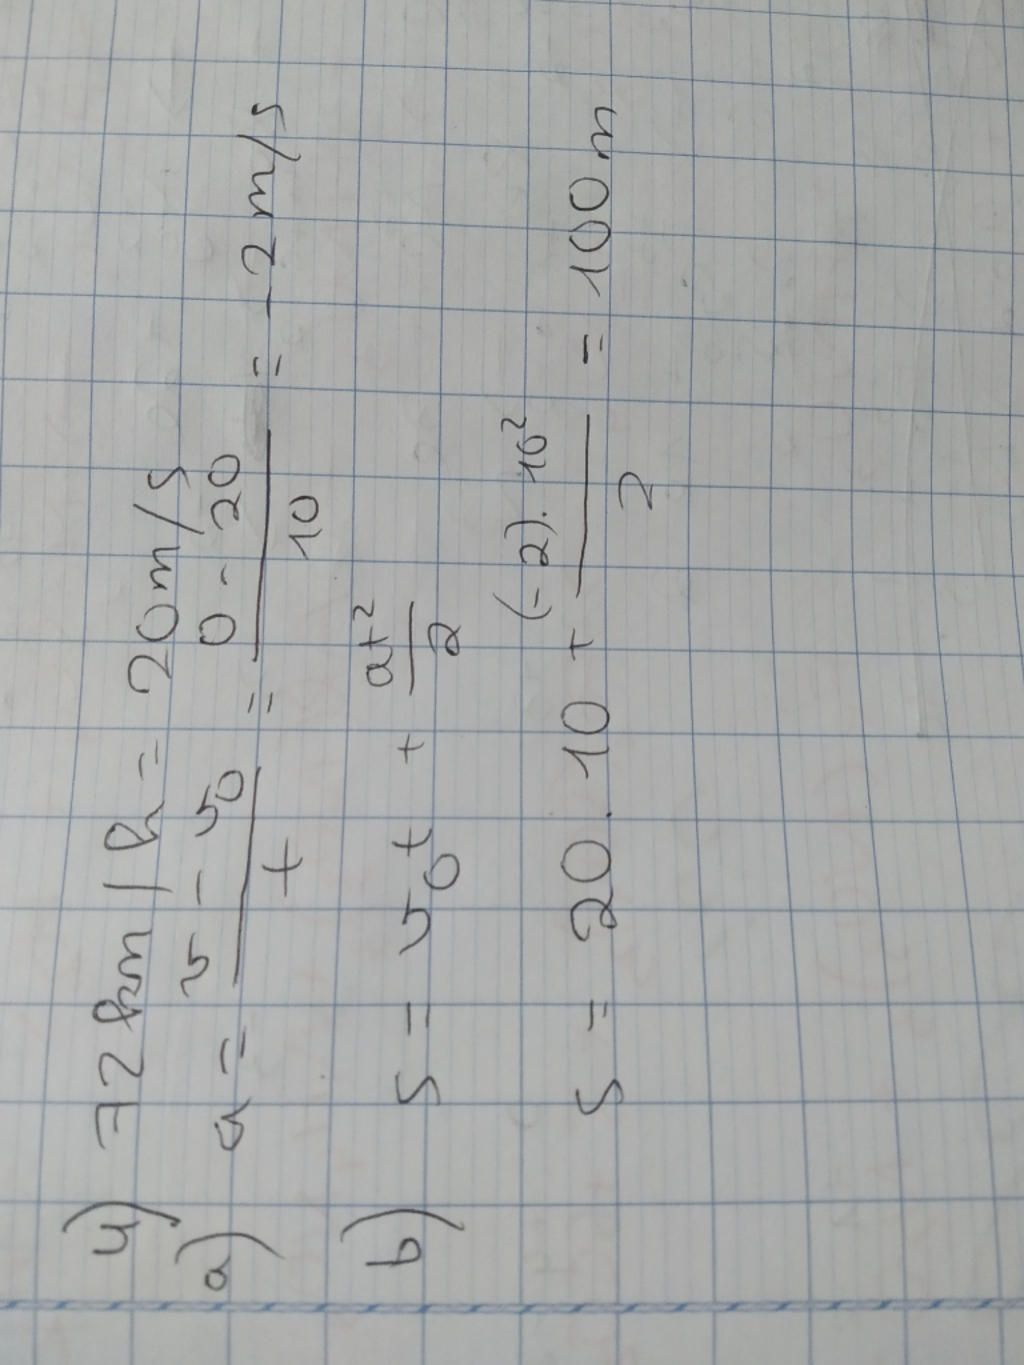 4) 72 km/h = 20 m/s
a) a = (v - v₀)/t = (0 - 20)/10 = - 2 m/s
b) s = v₀t + at²/2
s = 20 . 10 + (-2) . 10²/2 = 100 m